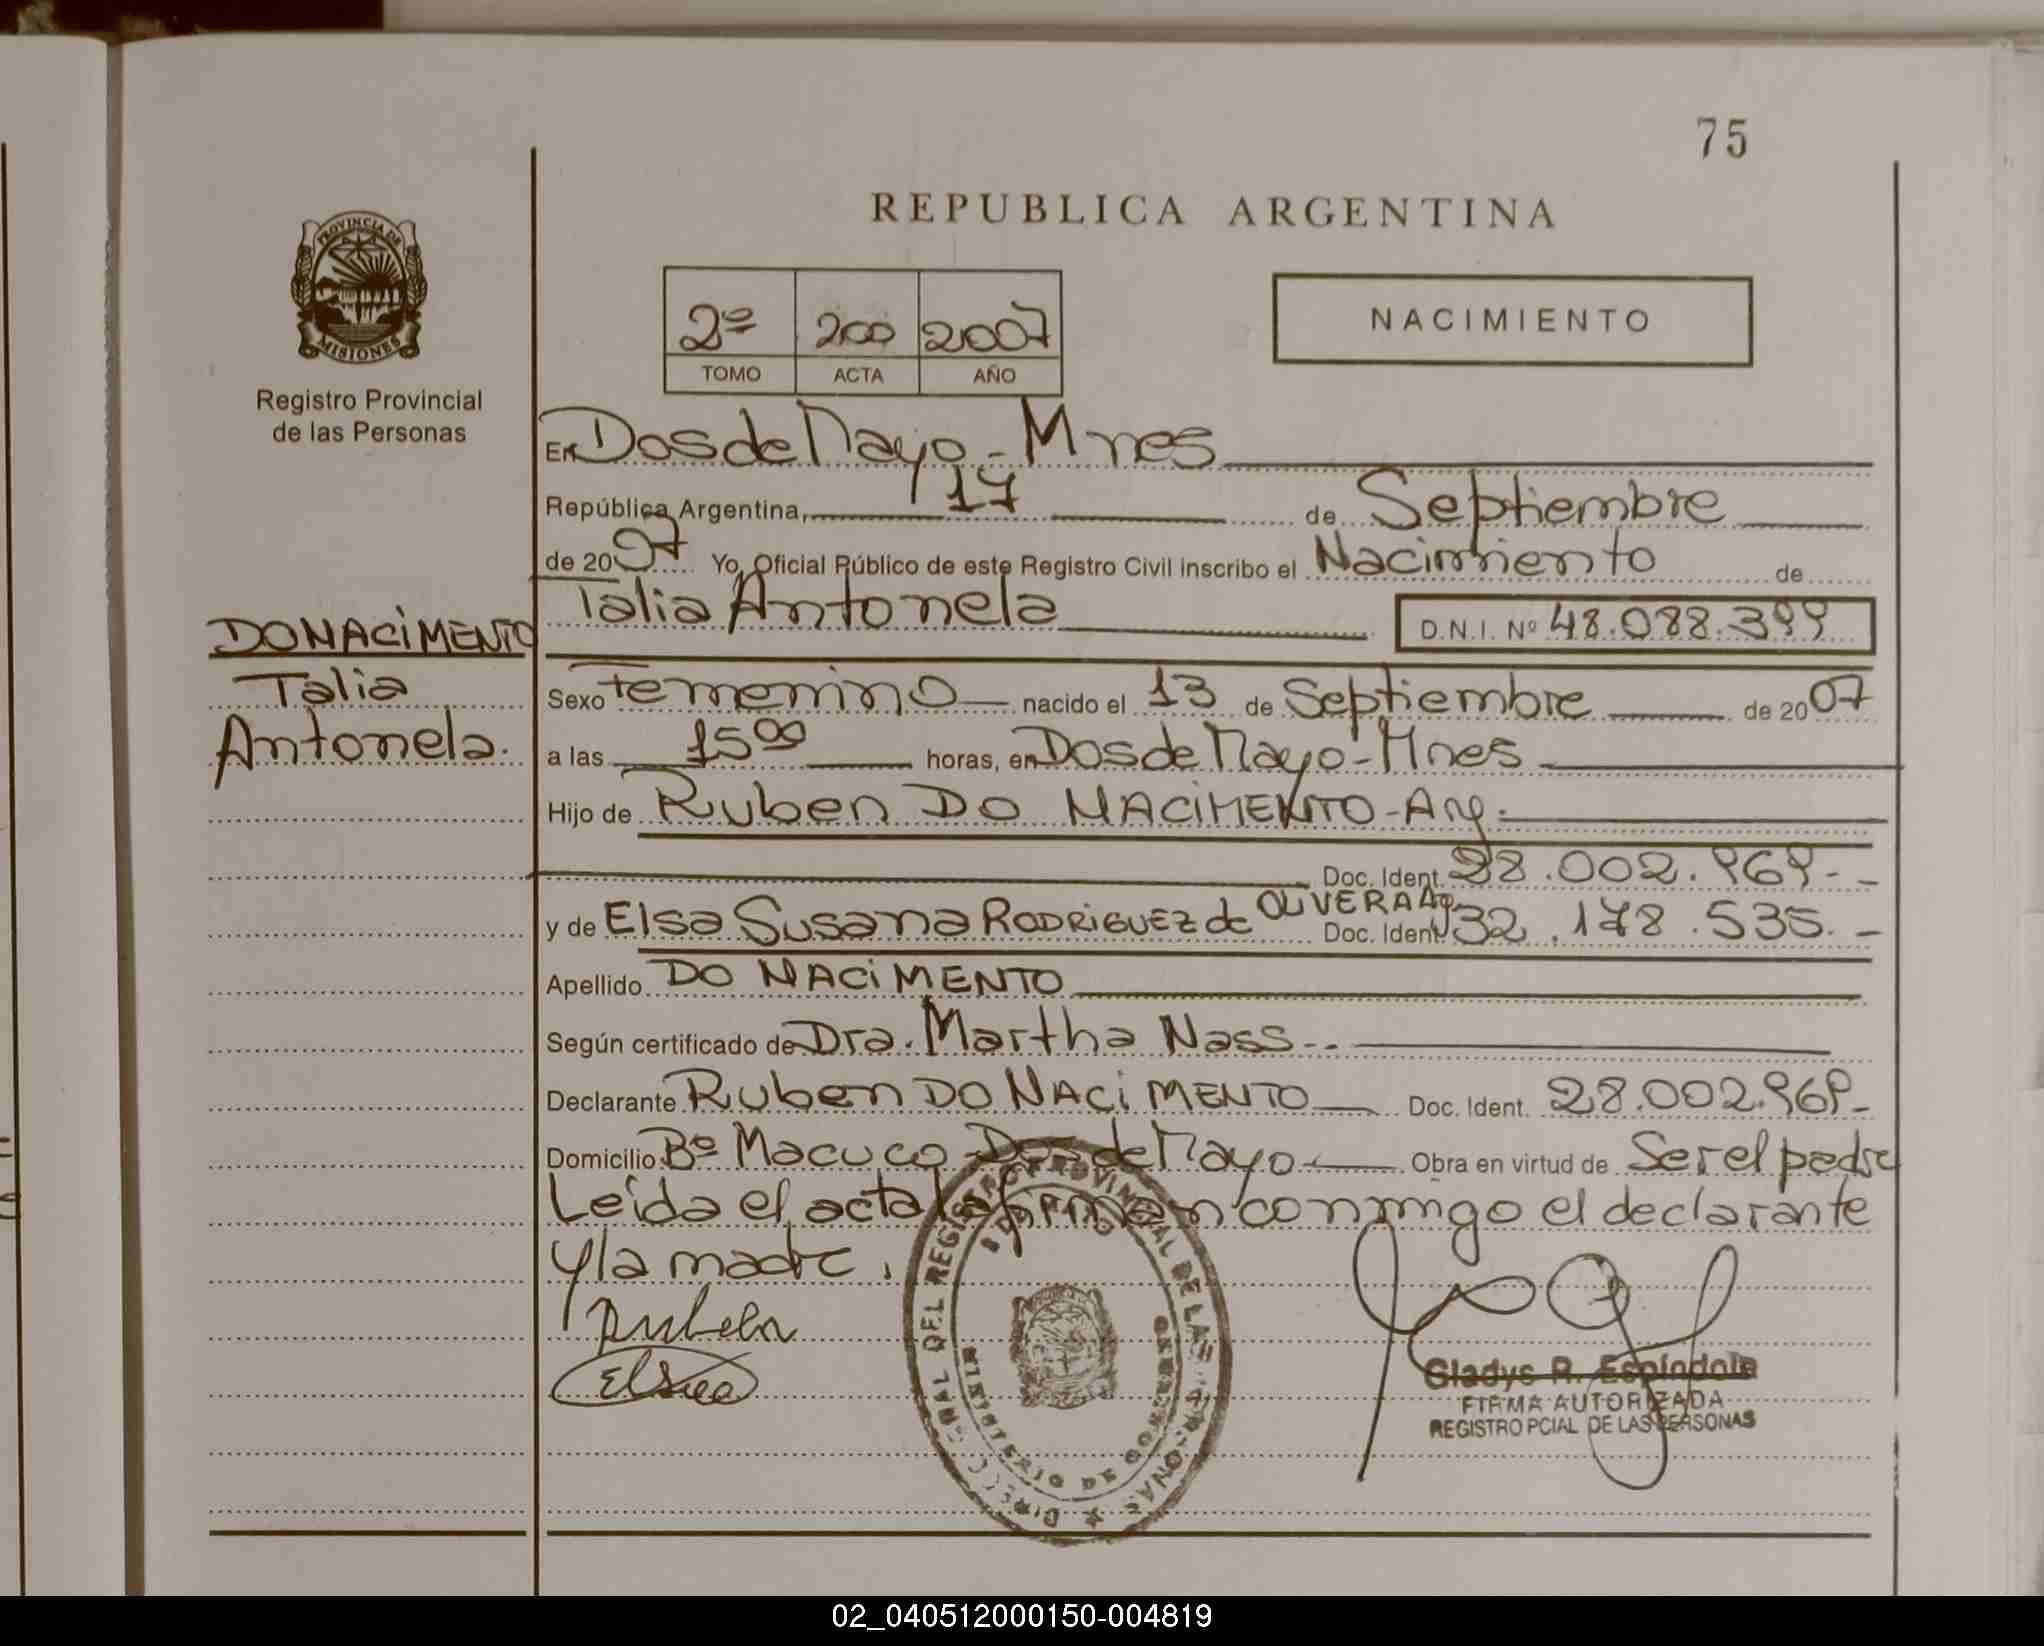 75
REPUBLICA ARGENTINA
PROVINCIA DE
MISIONES
Registro Provincial
de las Personas
2º 200 2007
TOMO ACTA AÑO
NACIMIENTO
En Dos de Mayo - Mnes
República Argentina, 17 de Septiembre
de 2007 Yo, Oficial Público de este Registro Civil inscribo el Nacimiento de
Talia Antonela D.N.I. Nº 48.088.399
DO NACIMENTO
Talia
Antonela.
Sexo Femenino nacido el 13 de Septiembre de 2007
a las 15 00 horas, en Dos de Mayo - Mnes
Hijo de Ruben DO NACIMENTO - Arg.
Doc. Ident. 28.002.969.-
y de Elsa Susana RODRIGUEZ de OLIVERA Arg. Doc. Ident. 32.178.535.-
Apellido DO NACIMENTO
Según certificado de Dra. Martha Nass.-
Declarante Ruben DO NACIMENTO Doc. Ident. 28.002.969-
Domicilio Bº Macuco Dos de Mayo Obra en virtud de Ser el padre
Leida el acta la firman conmigo el declarante
y la madre.
Ruben
Elsa
DIRECC GRAL DEL REGISTRO PROVINCIAL DE LAS PERSONAS
MINISTERIO DE GOBIERNO
Gladys R. Espíndola
FIRMA AUTORIZADA
REGISTRO PCIAL DE LAS PERSONAS
02_040512000150-004819